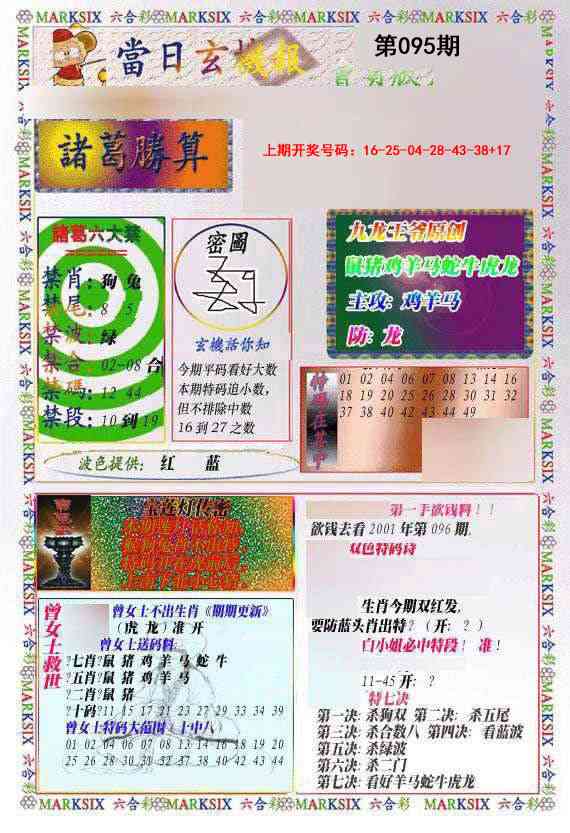 MARKSIX 六合彩 MARKSIX 六合彩 MARKSIX 六合彩 MARKSIX 六合彩 MARKSIX
當日玄機報
第095期
諸葛勝算
上期开奖号码：16-25-04-28-43-38+17
諸葛六大禁
禁肖：狗 兔
禁尾：8 5
禁波：绿
禁合：02-08 合
禁碼：12 44
禁段：10 到 19
密圖
玄機話你知
今期平码看好大数
本期特码追小数，
但不排除中数
16 到 27 之数
九龙王爷原创
鼠猪鸡羊马蛇牛虎龙
主攻：鸡羊马
防：龙
01 02 04 06 07 08 13 14 16
18 19 20 25 26 28 30 31 32
37 38 40 42 43 44 49
波色提供： 红 蓝
宝莲灯传密
第一手欲钱料！！
欲钱去看 2001 年第 096 期.
双色特码诗
生肖今期双红发,
要防蓝头肖出特？（开：？）
白小姐必中特段！ 准！
11-45 开：？
特七决
第一决: 杀狗双 第二决: 杀五尾
第三决: 杀合数八 第四决: 看蓝波
第五决: 杀绿波
第六决: 杀二门
第七决: 看好羊马蛇牛虎龙
曾女士救世
曾女士不出生肖《期期更新》
（虎 龙）准 开
曾女士送码料:
?七肖?鼠 猪 鸡 羊 马 蛇 牛
?五肖?鼠 猪 鸡 羊 马
?二肖?鼠 猪
?十码?11 15 17 21 23 27 29 33 34 39
曾女士特码大范围—十中八
01 02 04 06 07 08 13 14 16 18 19 20
25 26 28 30 31 32 37 38 40 42 43 44
MARKSIX 六合彩 MARKSIX 六合彩 MARKSIX 六合彩 MARKSIX 六合彩 MARKSIX